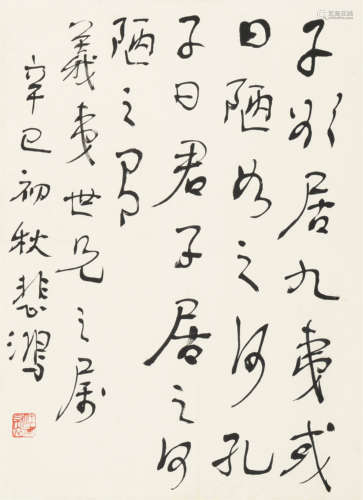 子欲居九夷或
曰陋如之何孔
子曰君子居之何
陋之有
義夷世兄之属
辛巳初秋悲鴻